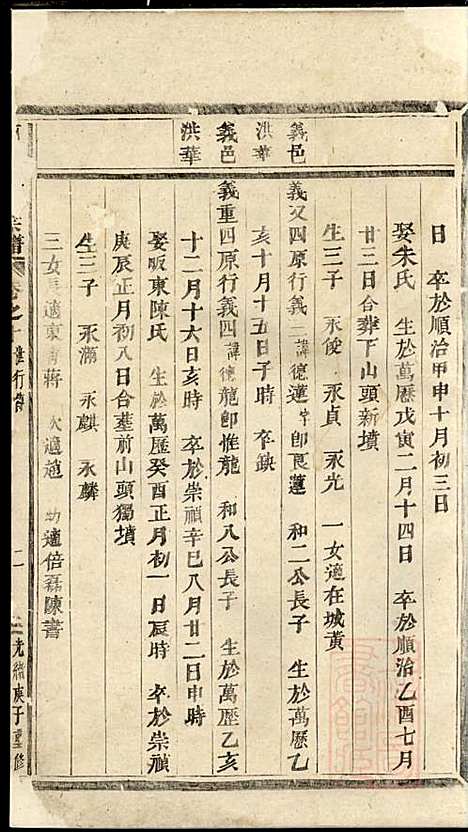 日 卒於順治甲申十月初三日
娶朱氏 生於萬曆戊寅二月十四日 卒於順治乙酉七月
廿三日合葬下山頭新墳
生三子 永俊 永貞 永光 一女適在城黃
義邑 洪華
義文四原行義三諱德蓮字卽良蓮 和二公長子 生於萬曆乙
亥十月十五日子時 卒缺
義邑 洪華
義重四原行義四諱德龍卽惟龍 和八公長子 生於萬歷乙亥
十二月十六日亥時 卒於崇禎辛巳八月廿二日申時
娶坂東陳氏 生於萬歷癸酉正月初一日辰時 卒於崇禎
庚辰正月初八日合葬前山頭獨墳
生三子 永滿 永麒 永麟
三女長適東 蔣 次適趙 幼適倍磊陳書
宗譜 卷之十 行傳 二 光緒庚子重修